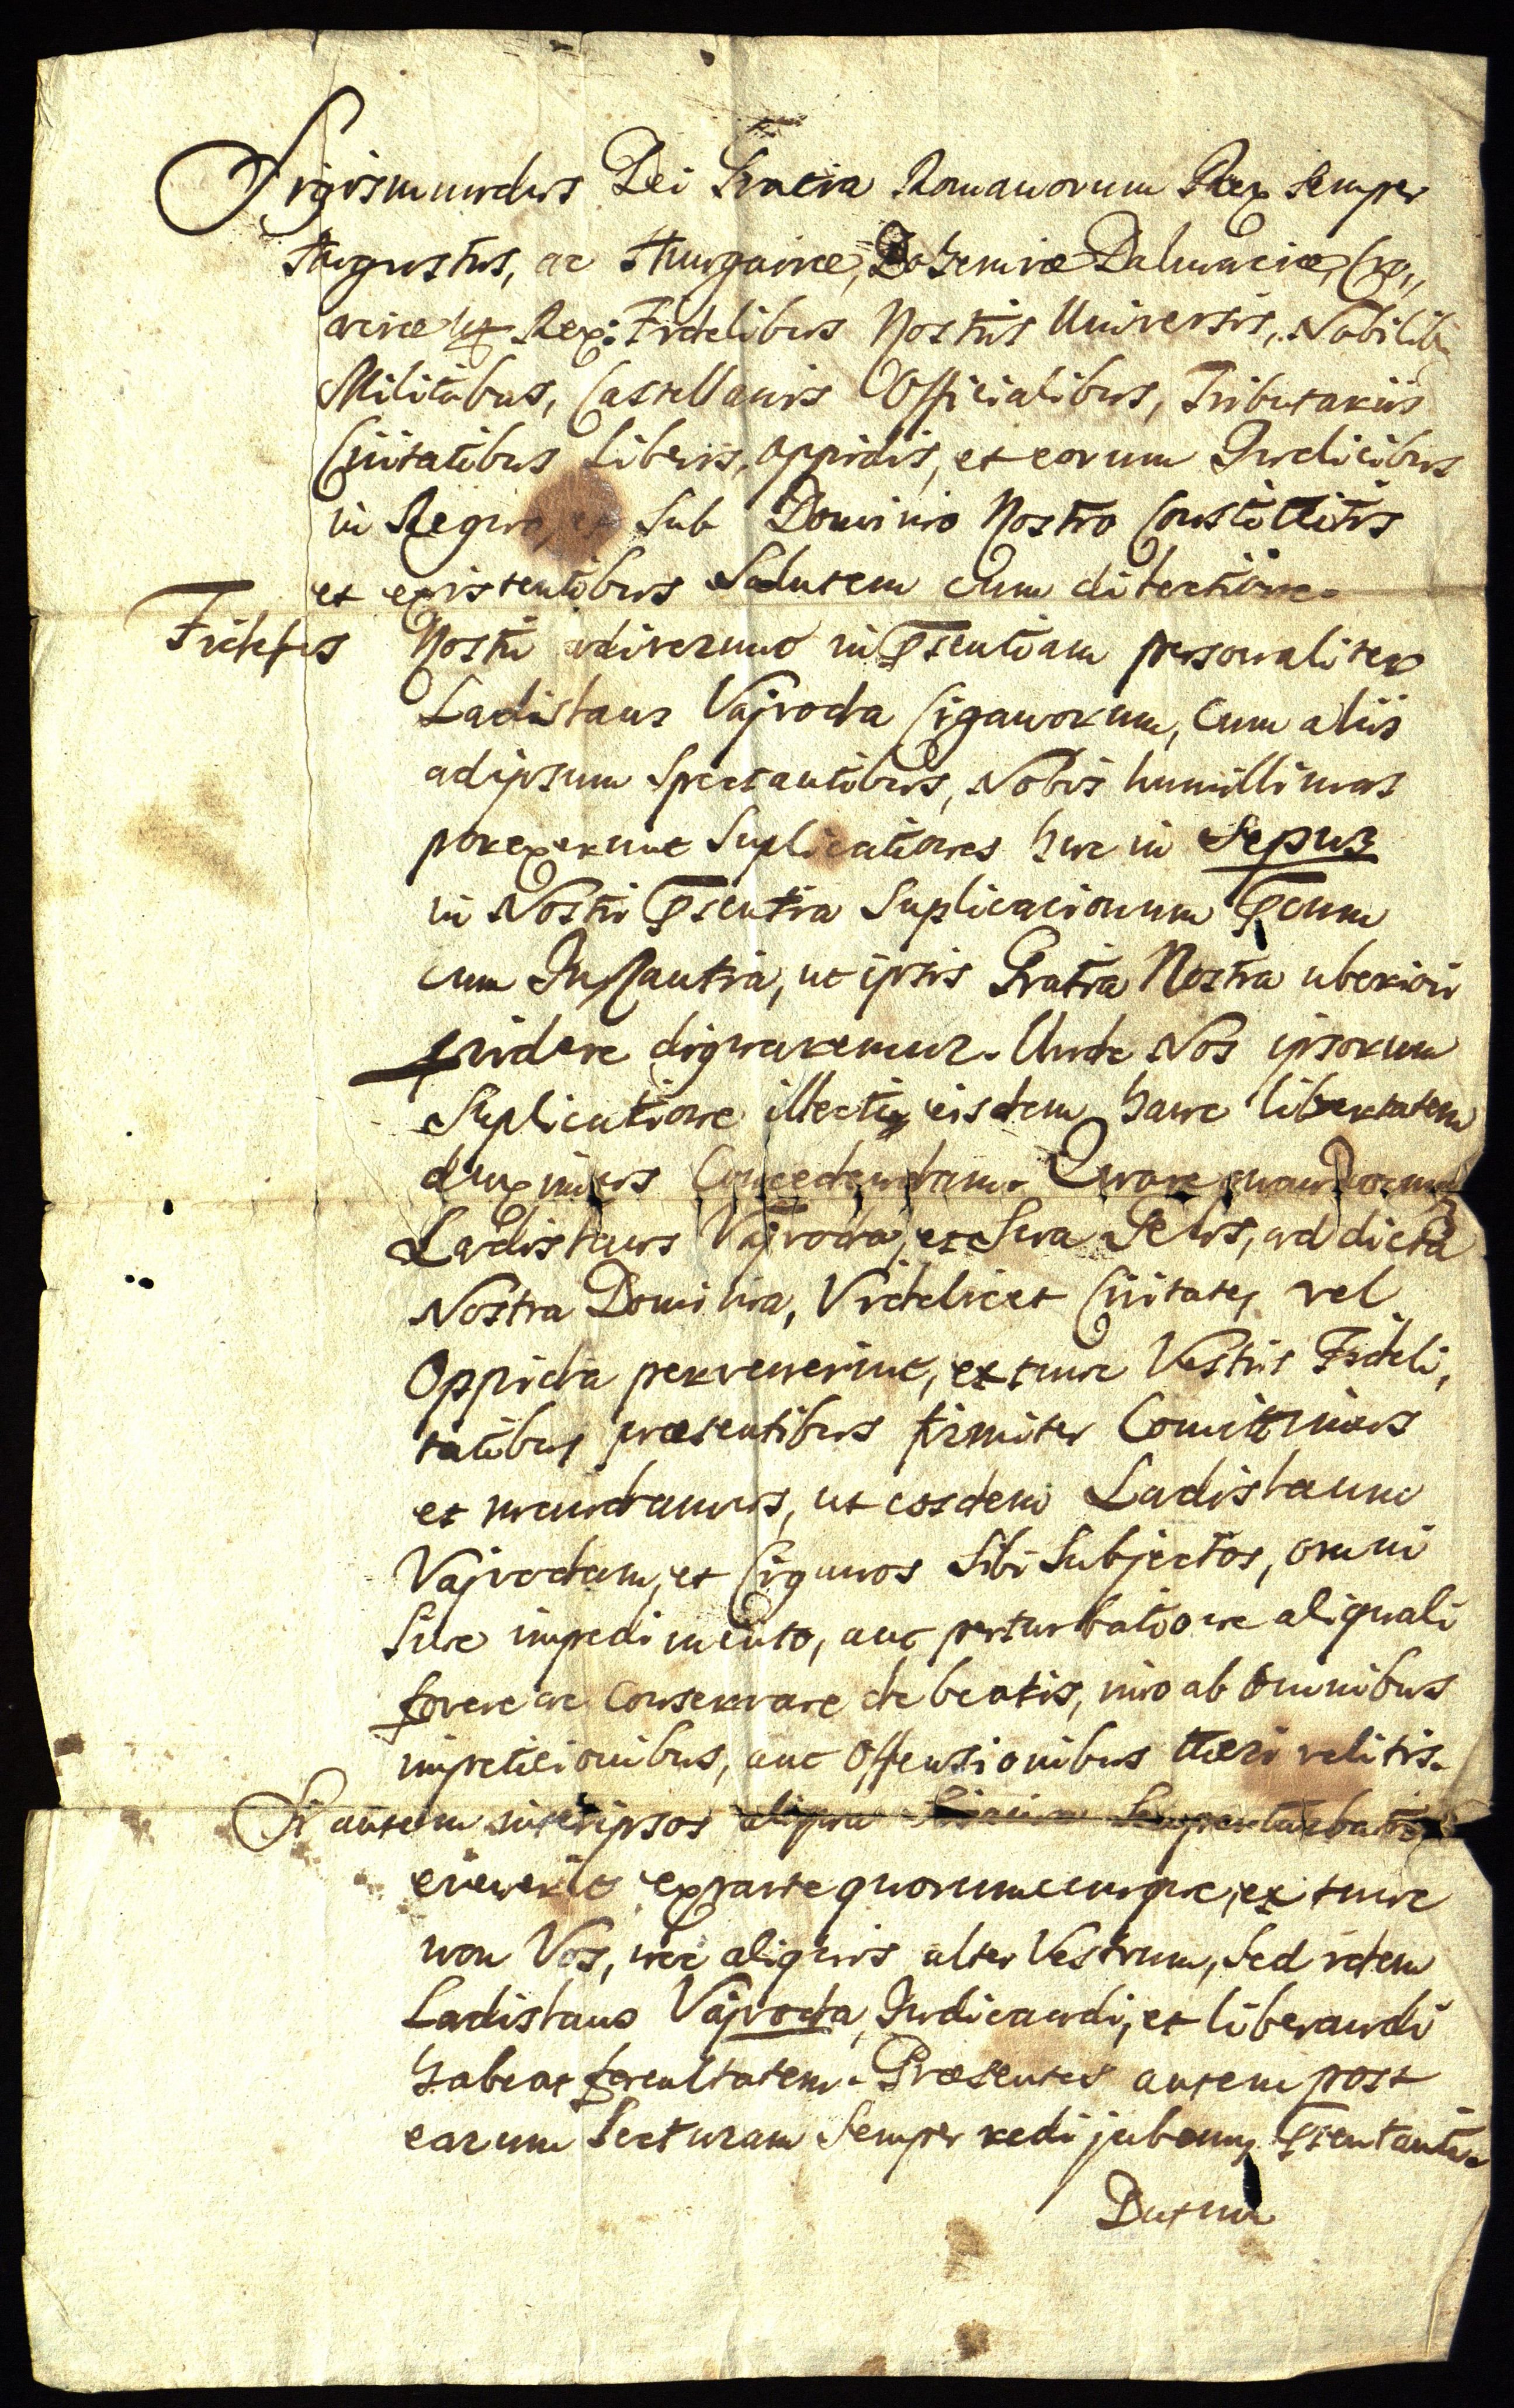 Sigismundus Dei Gratia Romanorum Rex semper
Augustus, ac Hungariæ, Bohemiæ Dalmaciæ, Cro,,
aciæ etc Rex: Fidelibus Nostris Universis, Nobilib
Militibus, Castellanis Officialibus, Tributariis
Civitatibus Liberis, oppidis, et eorum Iudicibus
in Regno, et Sub Dominio Nostro Constitutis
et existentibus Salutem cum dilectione.
Fideles Nostri adiverunt in pſentiam personaliter
Ladislaus Vajvoda Ciganorum, cum aliis
ad ipsum Spectantibus, Nobis humillimas
porexerunt Suplicationes huc in Sepus
in Nostri pſentia Suplicacionum pcum
cum Instantia, ut ipsis Gratia Nostra uberiori
pvidere dignaremur. Unde Nos ipsorum
Suplicatione illecti, eisdem hanc libertatem
duximus Concedendam. Quare quandocunq
Ladislaus Vajvoda, et Sua Gens, ad dicta
Nostra Dominia, Videlicet Civitates vel
Oppida pervenerint, ex tunc Vestris Fideli,
tatibus præsentibus firmiter Comittimus
et mandamus, ut eosdem Ladislaum
Vajvodam, et Ciganos Sibi Subjectos, omni
Sine impedimento, aut perturbatione aliquali
fovere ac Conservare debeatis, imo ab omnibus
impeticionibus, aut Offensionibus tueri velitis.
Si autem inter ipsos aliqua perturbatio
evenerit ex parte quorumcunque, ex tunc
non Vos, nec aliquis alter Vestrum, Sed idem
Ladislaus Vajvoda, Iudicandi, et liberandi
habeat facultatem. Præsentes autem post
earum Lecturam Semper redi jubemus pſentanti.
Datum